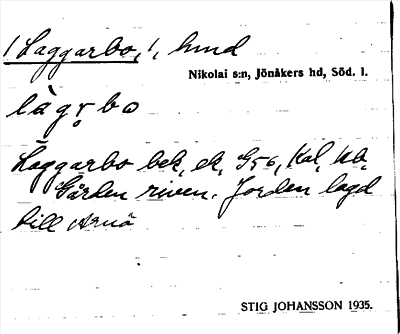 1 Laggarbo, 1, hmd
Nikolai s:n, Jönåkers hd, Söd. l.
làgṛbo
Laggarbo bek, ek, G56, Kal, Kb,
Gården riven. Jorden lagd
till Arnö
STIG JOHANSSON 1935.